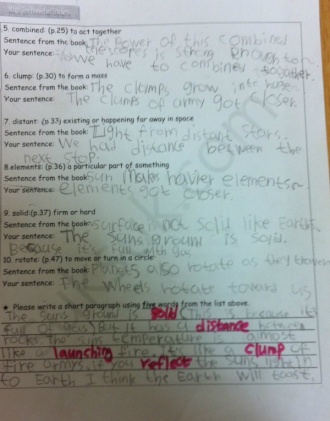 5. combined: (p.25) to act together
Sentence from the book: The Power of this combined
telescopes is strong enough to
Your sentence: We have to combines together.
6. clump: (p.30) to form a mass
Sentence from the book: The clumps grow into huge
Your sentence: The clumps of army got closer.
7. distant: (p 33) existing or happening far away in space
Sentence from the book: Light from distant stars.
Your sentence: We had distance between the
next stop.
8.elements: (p.36) a particular part of something
Sentence from the book: Sun makes havier elements
Your sentence: elements got closer.
9. solid:(p.37) firm or hard
Sentence from the book: surface is not solid like Earth.
Your sentence: The Suns ground is Solid.
Because it's full with gas
10. rotate: (p.47) to move or turn in a circle
Sentence from the book: Planets also rotate as they travel
Your sentence: The Wheels rotate toward us
Please write a short paragraph using five words from the list above.
The Suns ground is solid (This is because it's
full of gas) But it has a distance between
rocks. The sun temperature is almost
like a launching fire. It's like a clump of
fire armys. If you reflect the suns light in
to Earth I think the Earth will toast.